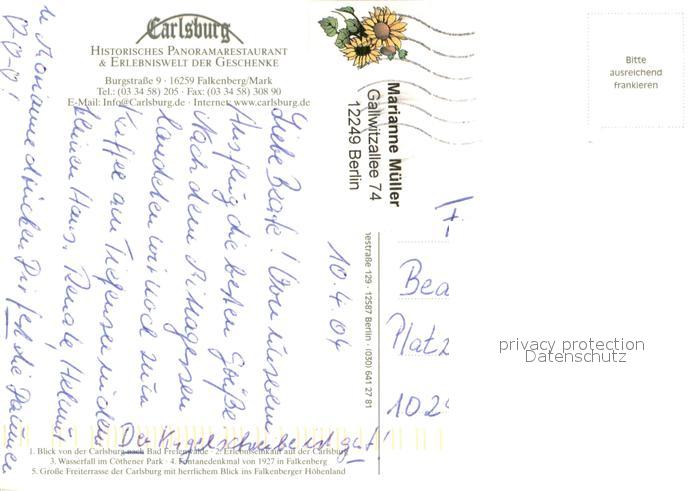 Carlsburg
HISTORISCHES PANORAMARESTAURANT
& ERLEBNISWELT DER GESCHENKE
Burgstraße 9 · 16259 Falkenberg/Mark
Tel.: (03 34 58) 205 · Fax: (03 34 58) 308 90
E-Mail: Info@Carlsburg.de · Internet: www.carlsburg.de
Bitte
ausreichend
frankieren
Marianne Müller
Gallwitzallee 74
12249 Berlin
10.4.04
Liebe Beate! Von unserem
Ausflug die besten Grüße
Nach dem Mittagessen
landeten wir noch zum
Kaffee am Tiefensee in dem
kleinen Haus. Renate, Helmut
u. Marianne drücken Dir fest die Daumen
Der Kugelschreiber ist gut!
nestraße 129 · 12587 Berlin · (030) 641 27 81
Bea
Platz
102
privacy protection
Datenschutz
1. Blick von der Carlsburg nach Bad Freienwalde · 2. Erlebniseinkauf auf der Carlsburg
3. Wasserfall im Cöthener Park · 4. Fontanedenkmal von 1927 in Falkenberg
5. Große Freiterrasse der Carlsburg mit herrlichem Blick ins Falkenberger Höhenland